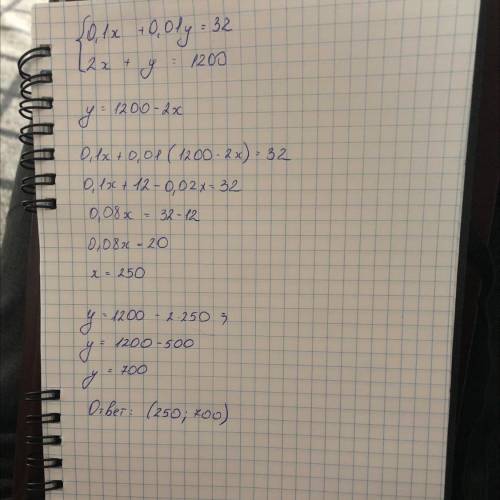 0,1x + 0,01y = 32
2x + y = 1200
y = 1200 - 2x
0,1x + 0,01(1200 - 2x) = 32
0,1x + 12 - 0,02x = 32
0,08x = 32 - 12
0,08x - 20
x = 250
y = 1200 - 2·250 ;
y = 1200 - 500
y = 700
Ответ: (250; 700)